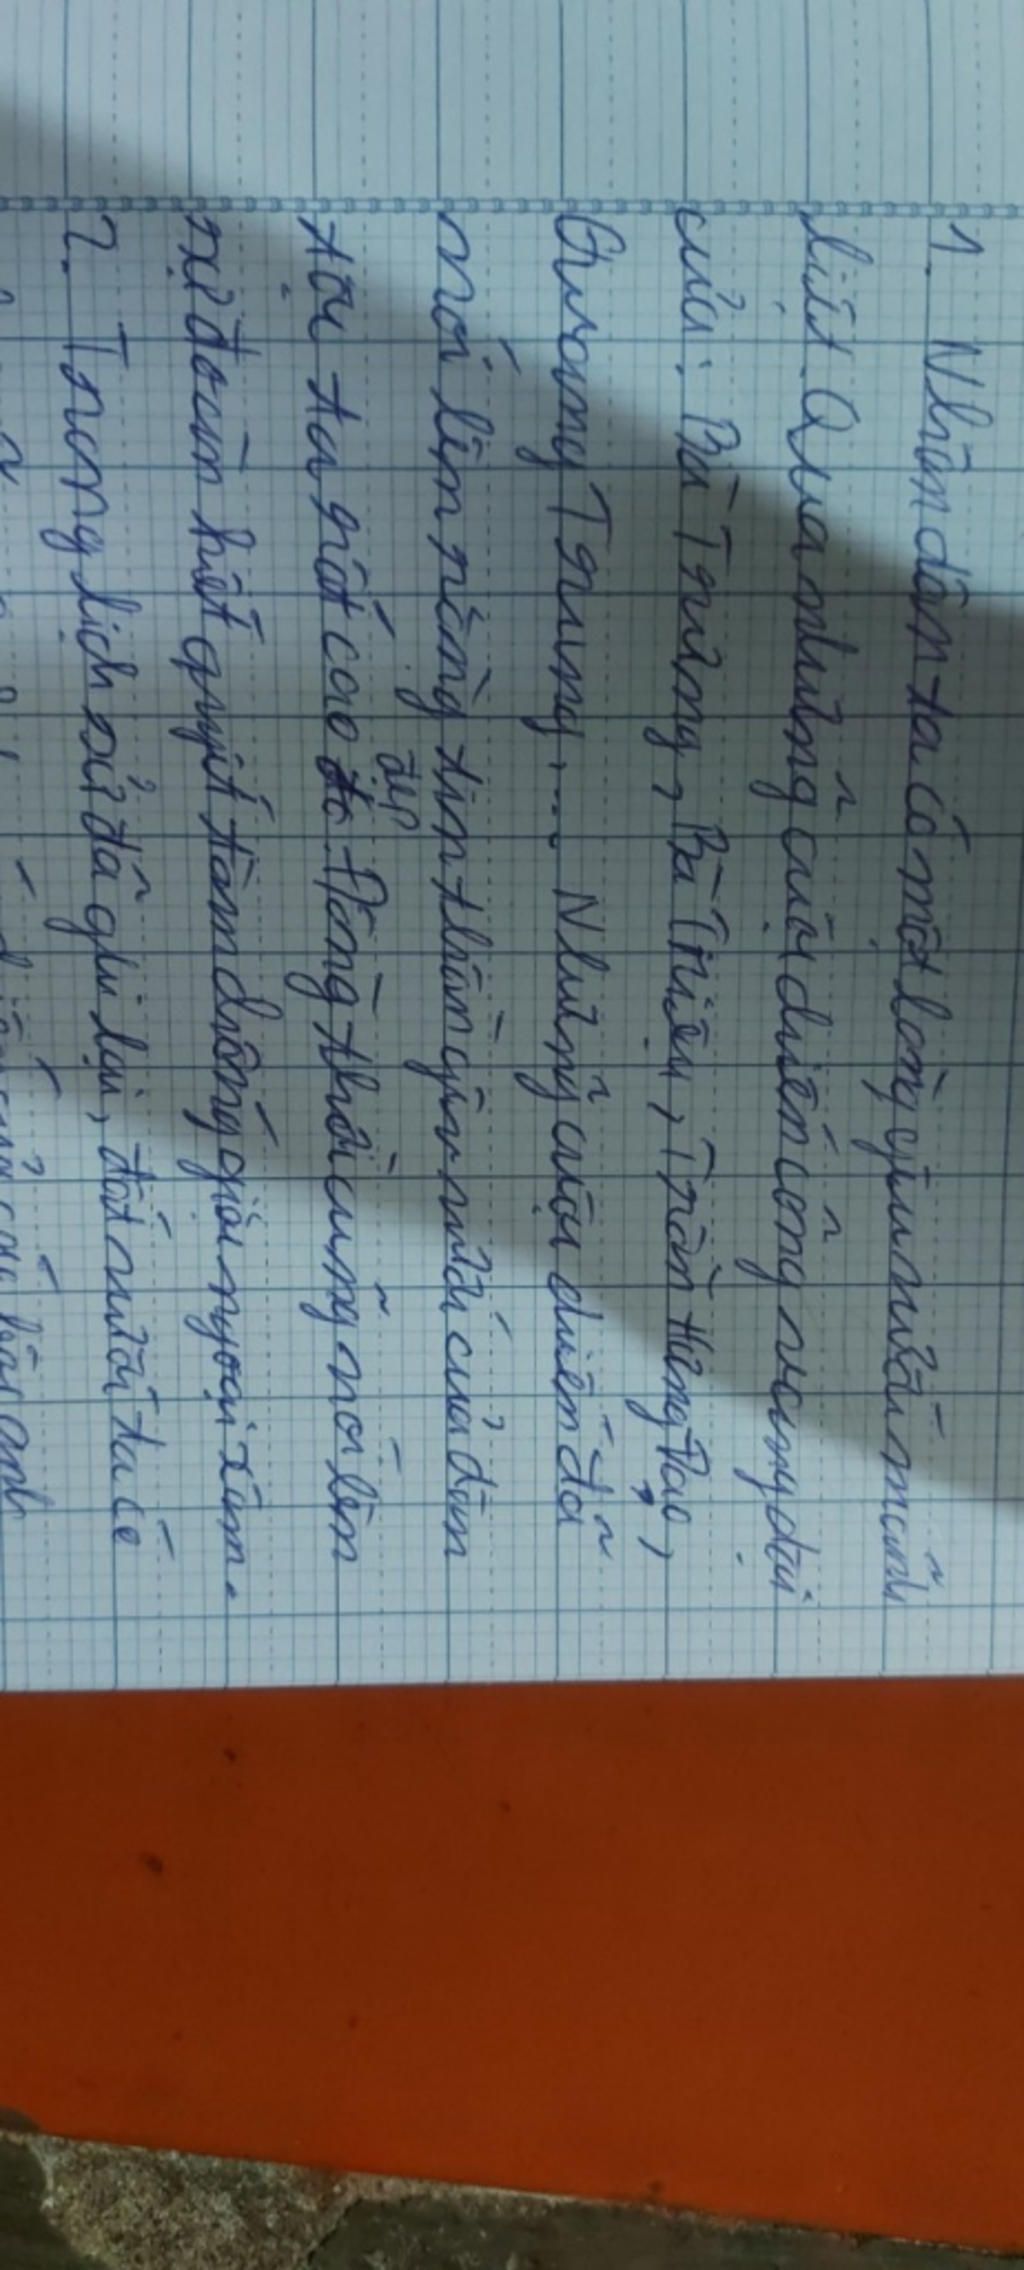 1. Nhân dân ta có một lòng yêu nước mãnh
liệt. Qua những cuộc chiến công vang dội
của: Bà Trưng, Bà Triệu, Trần Hưng Đạo,
Quang Trung,... Những cuộc chiến đã
nói lên rằng tinh thần yêu nước của dân
tộc ta rất cao đẹp. Đồng thời cũng nói lên
sự đoàn kết quyết tâm chống giặc ngoại xâm.
2. Trong lịch sử đã ghi lại, đất nước ta có